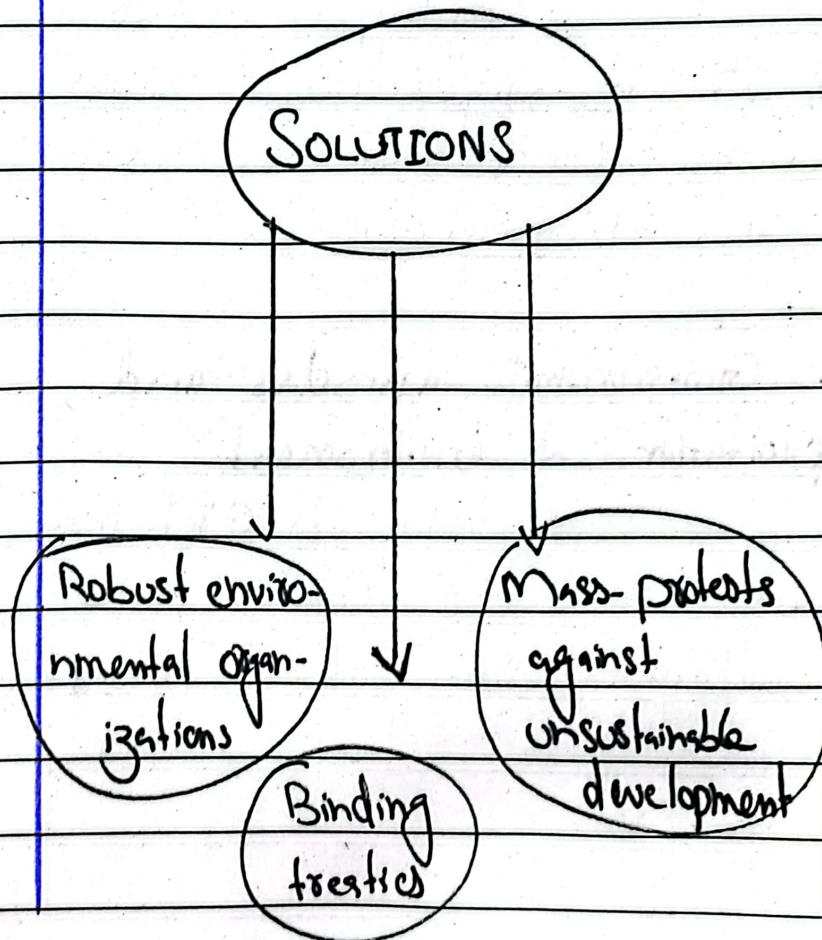 SOLUTIONS
Robust enviro-
nmental organ-
izations
Binding
treaties
Mass-protests
against
unsustainable
development